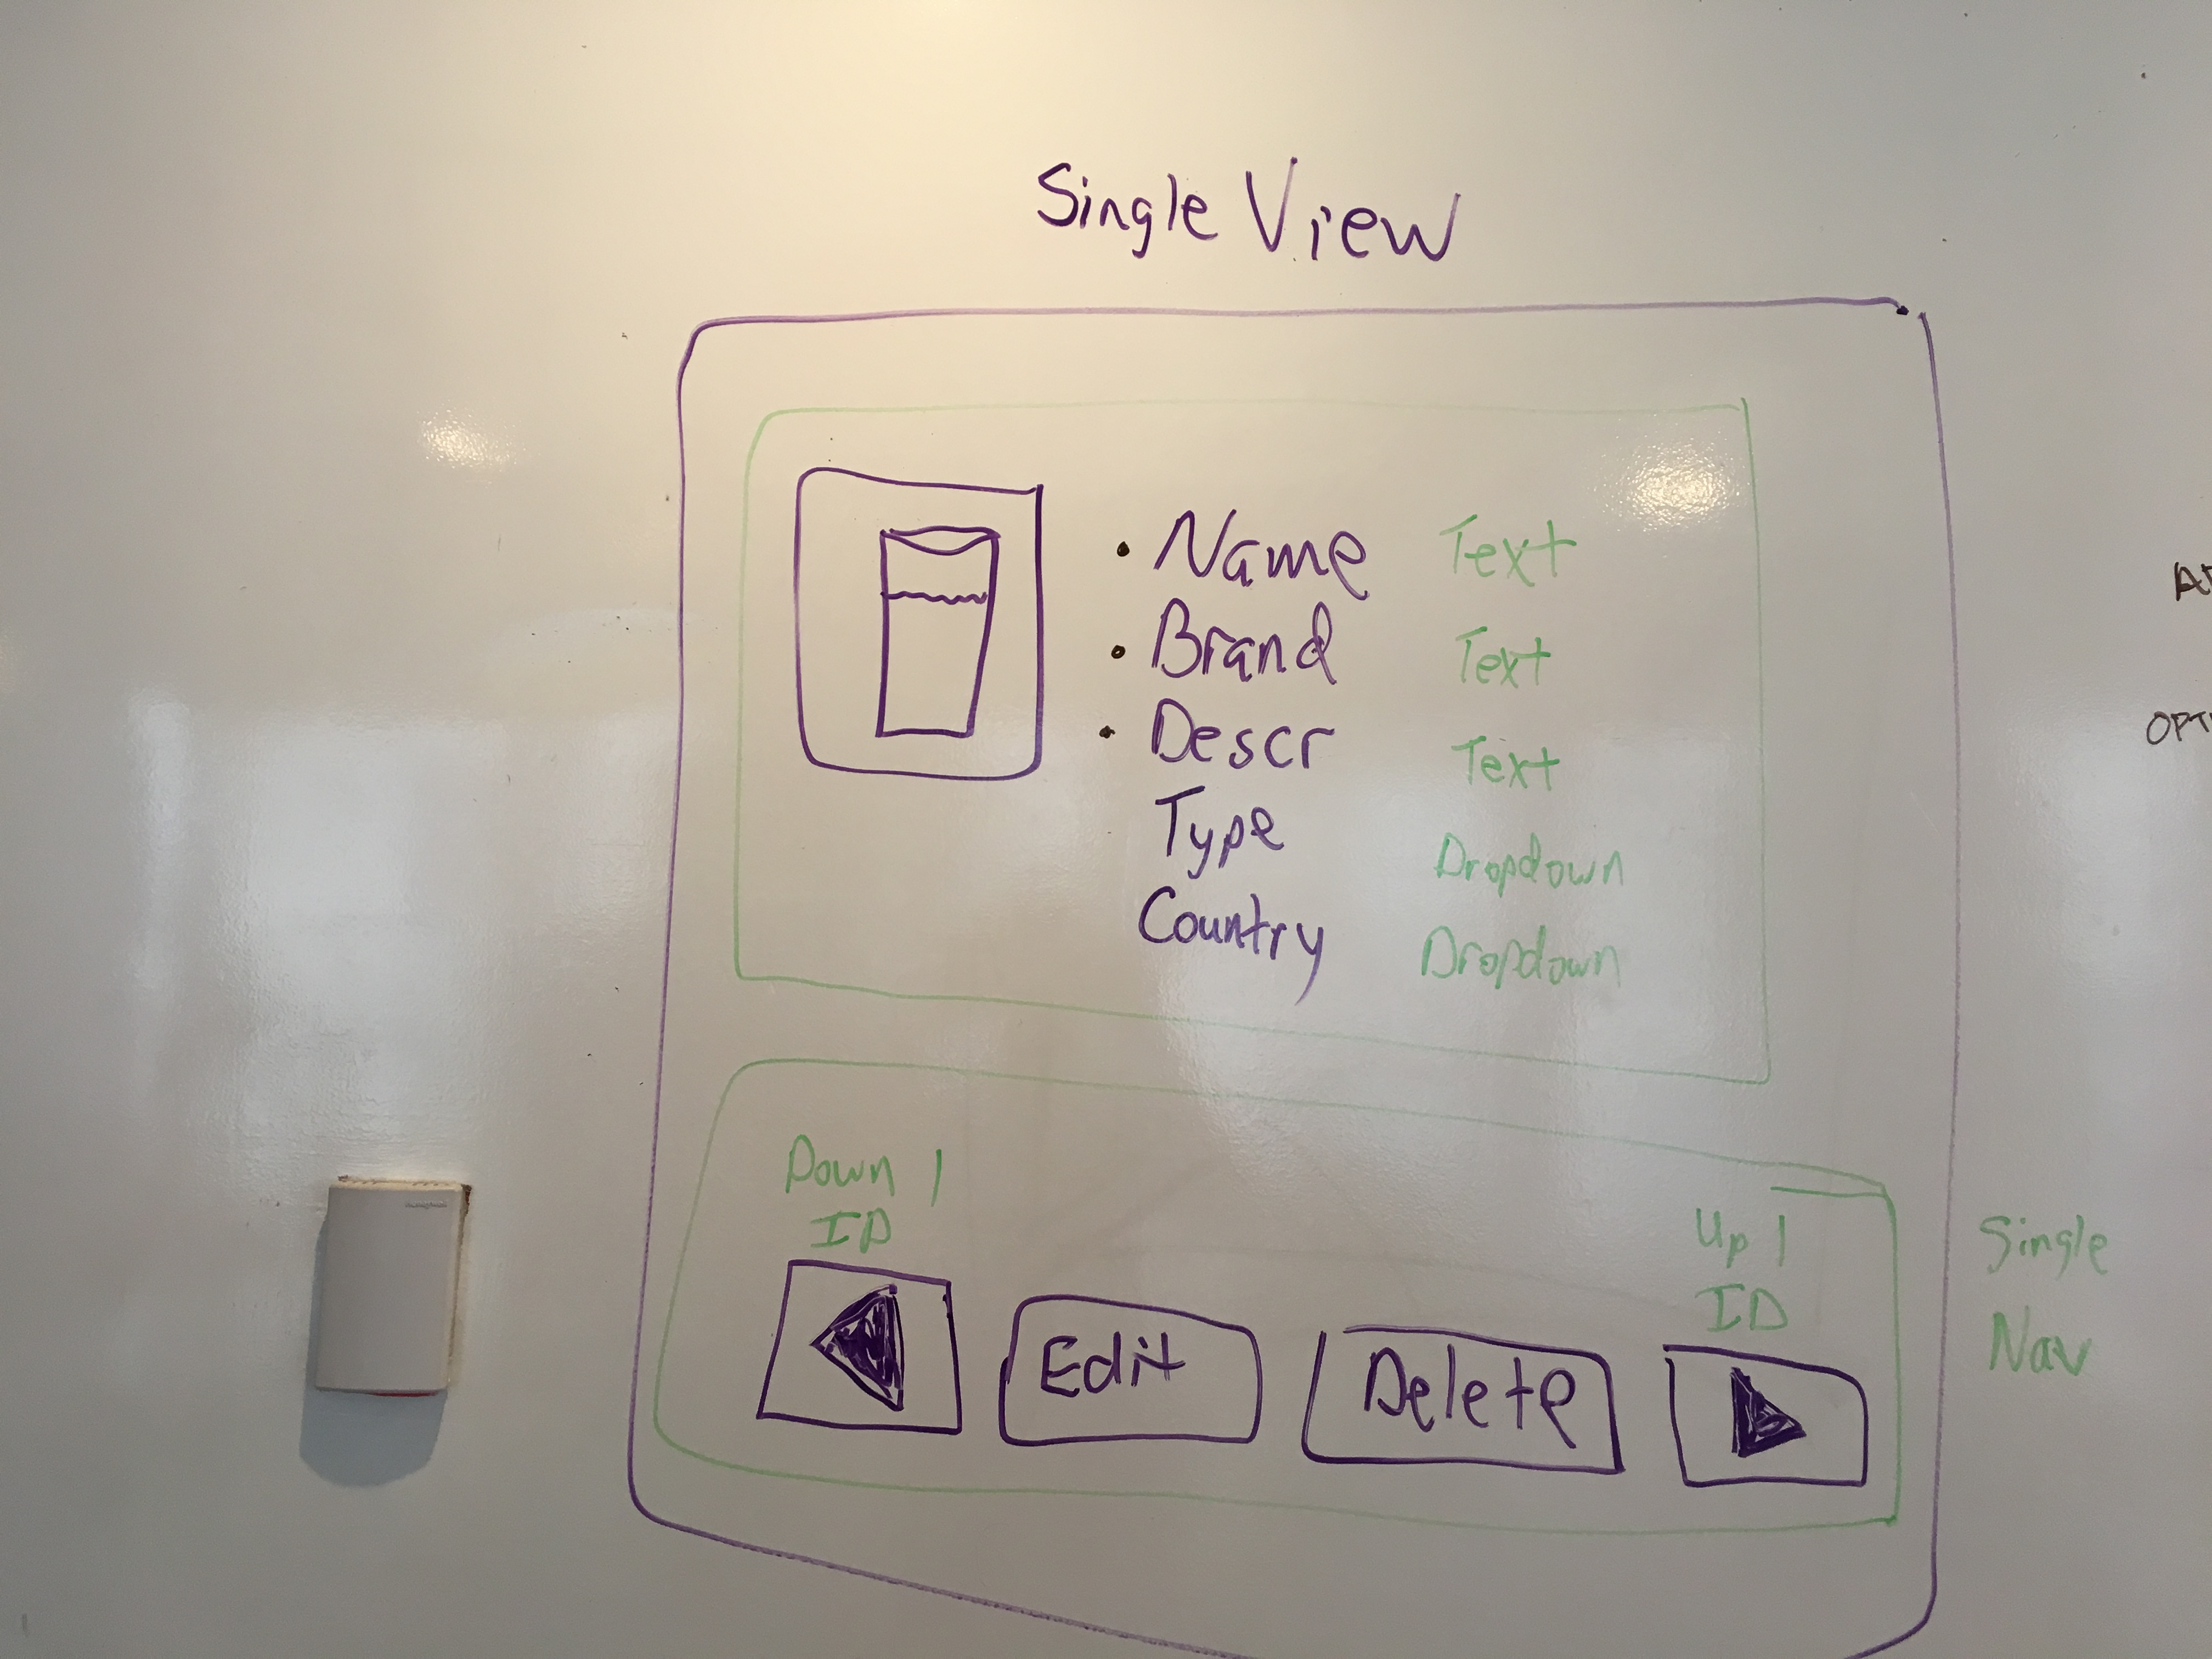 Single View
• Name Text
• Brand Text
• Descr Text
Type Dropdown
Country Dropdown
Down 1
ID
Up 1
ID
Edit
Delete
Single
Nav